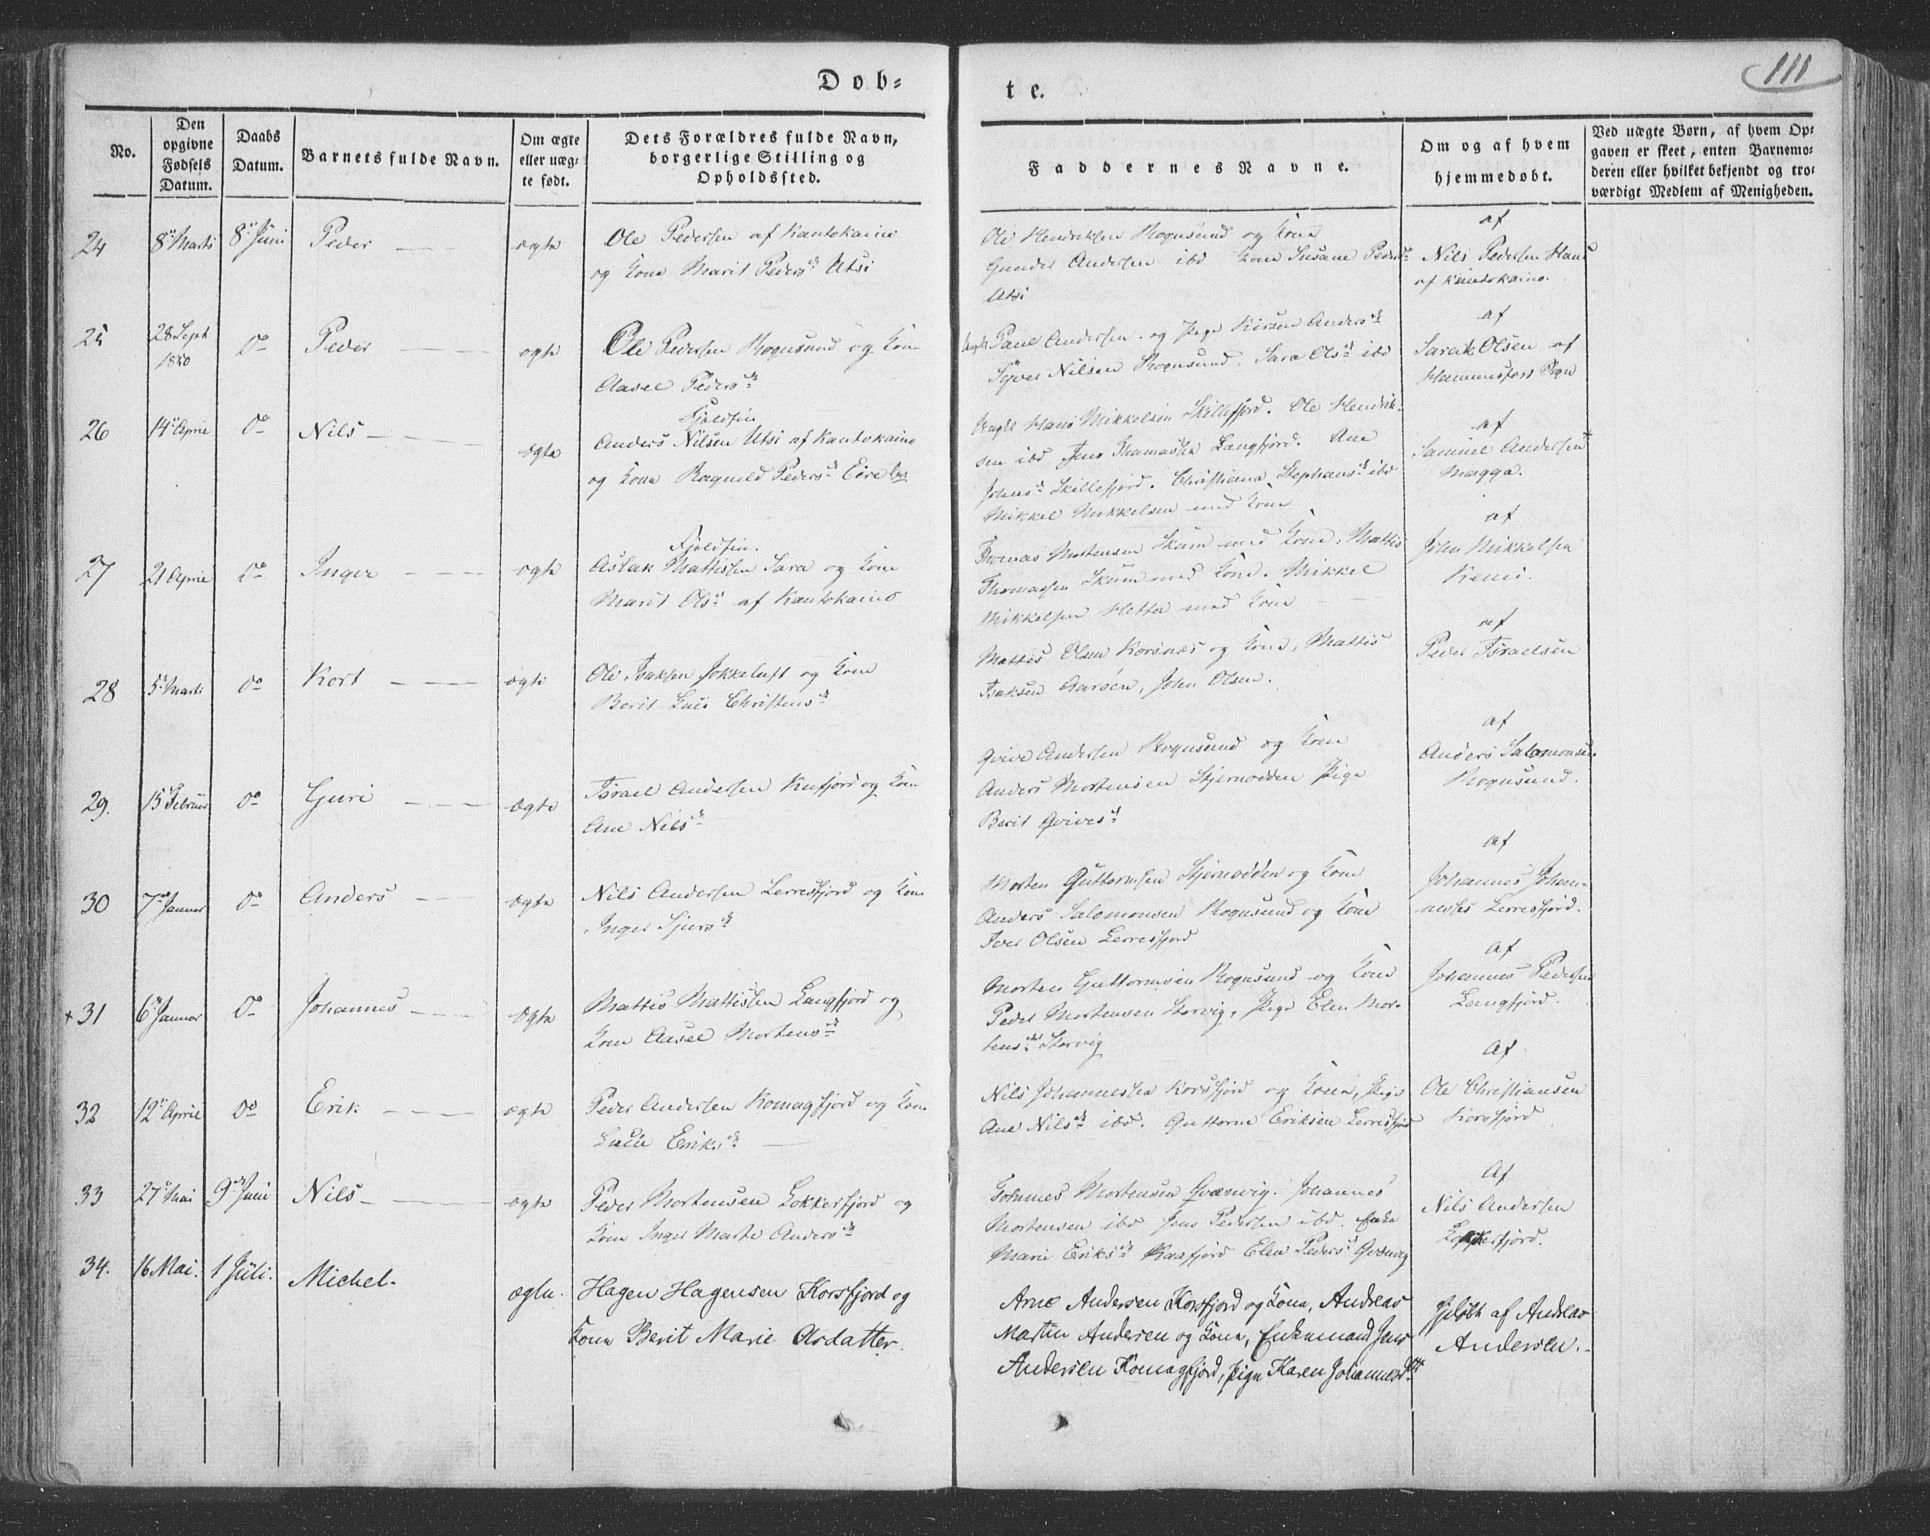 111
Døb-
te.
No.
Den opgivne Fødsels Datum.
Daabs Datum.
Barnets fulde Navn.
Om ægte eller uægte født.
Dets Forældres fulde Navn, borgerlige Stilling og Opholdssted.
Faddernes Navne.
Om og af hvem hjemmedøbt.
Ved uægte Børn, af hvem Opgaven er skeet, enten Barnemoderen eller hvilket bekjendt og troværdigt Medlem af Menigheden.
24 8de Marts 8de Juni Peder ægte
Ole Pedersen af Kautokaino
og Kone Marit Pedersdr Utsi
Ole Hendriksen Rognsund og Kone
Gunder Andersen ibd Kone Susane Pedersdr
Utsi
af
Nils Pedersen
af Kautokaino.
25 28 Sept 1840 Do Peder ægte
Ole Pedersen Rognsund og Kone
Aasel Pedersdr
Paul Andersen og Pige Kirsen Andersdr
Syver Nilsen Rognsund. Sara Olsdr ibd
af
Olsen af
Hammerfest
26 14de April Do Nils ægte
Fjeldfin
Anders Nilsen Utsi af Kautokaino
og Kone Ragnild Pedersdr Eira
Hans Mikkelsen Skillefjord. Ole Hendrik-
sen ibd Jens Thomassen Langfjord. Ane
Johnsdr Skillefjord. Christiana Stephansdr ibd
Mikkel Mikkelsen med Kone
af
Samuel Andersen
Magga.
27 21 April Do Inger ægte
Fjeldfin.
Aslak Mattissen Sara og Kone
Marit Olsdr af Kautokaino
Thomas Mortensen Skum med Kone, Mattis
Thomassen Skum med Kone. Mikkel
Mikkelsen Hetta med Kone
af
John Mikkelsen
Kemi.
28 5te Marts Do Kort ægte
Ole Isaksen Jokkeluft og Kone
Berit Lucie Christensdr
Mattis Olsen Korsnæs og Kone, Mattis
Isaksen Aarøen, John Olsen.
af
Peder Israelsen
29. 15de Februar Do Guri ægte
Israel Andersen Kufjord og Kone
Ane Nilsdr
Qvive Andersen Rognsund og Kone
Anders Mortensen Stjernodden Pige
Berit Qvivesdr
af
Anders Salomonsen
Rognsund.
30 7de Januar Do Anders ægte
Nils Andersen Lerresfjord og Kone
Inger Sjursdr
Morten Guttormsen Stjernodden og Kone
Anders Salomonsen Rognsund og Kone
Iver Olsen Lerresfjord
af
Johannes Johan-
nesses Lerresfjord.
+31 6te Januar Do Johannes ægte
Mattis Mattissen Langfjord og
Kone Aasel Mortensdr
Morten Guttormsen Rognsund og Kone
Peder Mortensen Storvig, Pige Elen Mor-
tensdr Storvig
af
Johannes Pedersen
Langfjord.
32 12te April Do Erik ægte
Peder Andersen Komagfjord og Kone
Lucie Eriksdr
Nils Johannessen Korsfjord og Kone, Pige
Ane Nilsdr ibd. Guttorm Eriksen Lerresfjord
af
Ole Christiansen
Korsfjord
33 27de Mai 9de Juni Nils ægte
Peder Mortensen Lokkerfjord og
Kone Inger Marte Andersdr
Johannes Mortensen Qvænvig. Johannes
Mortensen ibd Jens Pedersen ibd. Enke
Marie Eriksdr Kaafjord Elen Pedersdr Qvænvig
af
Nils Andersen
Lokkerfjord.
34. 16 Mai. 1 Juli. Michel. ægte.
Hagen Hagensen Korsfjord og
Kone Berit Marie Asdatter.
Arne Andersen Korsfjord og Kone, Andreas
Martin Andersen og Kone, Enkemand Jens
Andersen Komagfjord, Pige Karen Johannesdtr
Hjdøbt af Andreas
Andersen.